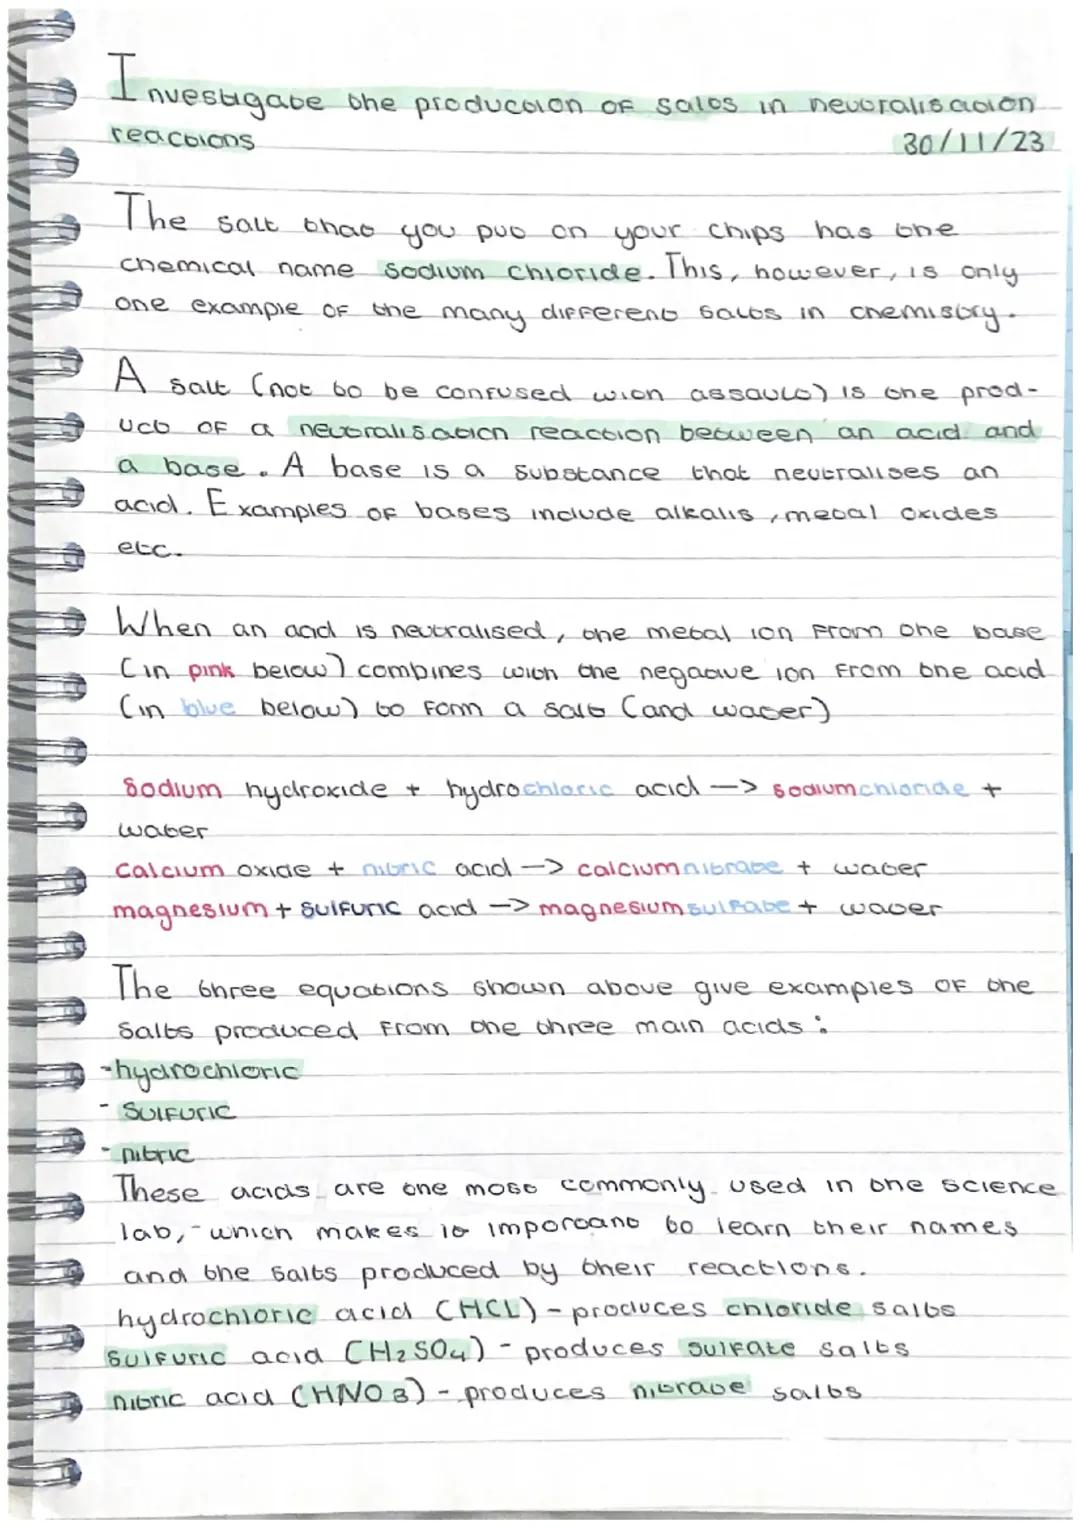 Investigate the production of salts in neutralisation
reactions 30/11/23
The salt that you put on your chips has the
chemical name sodium chloride. This, however, is only
one example of the many different salts in chemistry.
A salt (not to be confused with assault) is the prod-
uct of a neutralisation reaction between an acid and
a base. A base is a substance that neutralises an
acid. Examples of bases include alkalis, metal oxides
etc.
When an acid is neutralised, the metal ion from the base
(in pink below) combines with the negative ion from the acid
(in blue below) to form a salt (and water)
Sodium hydroxide + hydrochloric acid —> sodium chloride +
water
calcium oxide + nitric acid —> calcium nitrate + water
magnesium + sulfuric acid —> magnesium sulfate + water
The three equations shown above give examples of the
salts produced from the three main acids :
- hydrochloric
- sulfuric
- nitric
These acids are the most commonly used in the science
lab, - which makes it important to learn their names
and the salts produced by their reactions.
hydrochloric acid (HCL) - produces chloride salts
sulfuric acid (H2SO4) - produces sulfate salts
nitric acid (HNO3) - produces nitrate salts